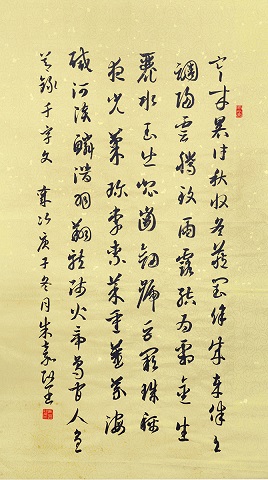 寒来暑往秋收冬藏閏餘成歲律呂
調陽雲騰致雨露結為霜金生
麗水玉出崑崗劍號巨闕珠稱
夜光菓珍李柰菜重芥薑海
鹹河淡鱗潛羽翔龍師火帝鳥官人皇
節錄千字文 歲次庚子冬月朱嘉書